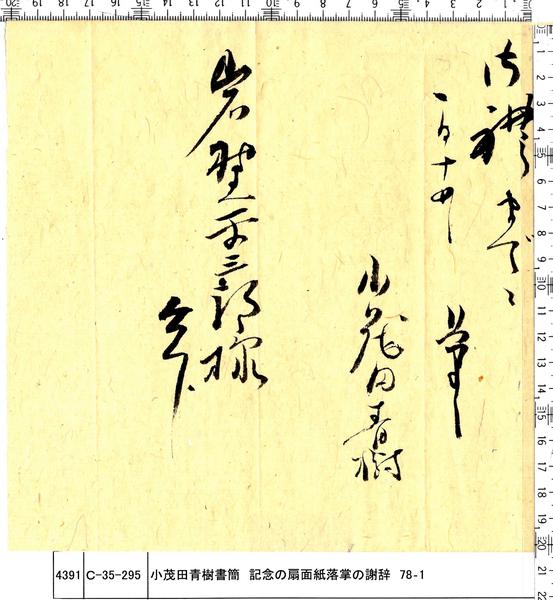 御禮まで
草々
一月十四
小茂田青樹
岩野平三郎様
4391 C-35-295 小茂田青樹書簡 記念の扇面紙落掌の謝辞 78-1